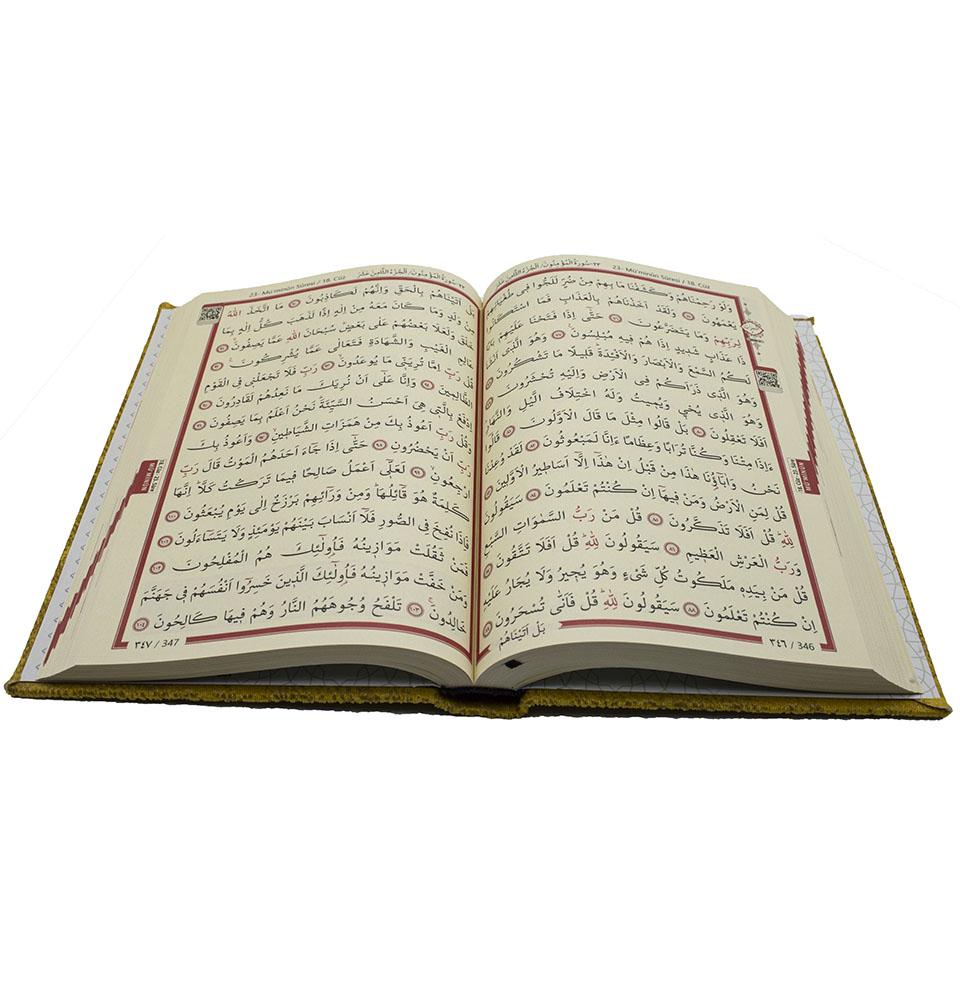 ٢٣-سُورَةُ الْمُؤْمِنُونَ/ اَلْجُزْءُ الثَّامِنَ عَشَرَ 23- Mü'minûn Sûresi / 18. Cüz
وَلَوْ رَحِمْنَاهُمْ وَكَشَفْنَا مَا بِهِمْ مِنْ ضُرٍّ لَلَجُّوا فِي طُغْيَانِهِمْ
يَعْمَهُونَ ﴿٧٥﴾ وَلَقَدْ اَخَذْنَاهُمْ بِالْعَذَابِ فَمَا اسْتَكَانُوا
لِرَبِّهِمْ وَمَا يَتَضَرَّعُونَ ﴿٧٦﴾ حَتّٰٓى اِذَا فَتَحْنَا عَلَيْهِمْ بَابًا
ذَا عَذَابٍ شَدِيدٍ اِذَا هُمْ فِيهِ مُبْلِسُونَ ﴿٧٧﴾ وَهُوَ الَّذِٓي اَنْشَاَ
لَكُمُ السَّمْعَ وَالْاَبْصَارَ وَالْاَفْـِٔدَةَ قَلِيلًا مَا تَشْكُرُونَ ﴿٧٨﴾
وَهُوَ الَّذِي ذَرَاَكُمْ فِي الْاَرْضِ وَاِلَيْهِ تُحْشَرُونَ ﴿٧٩﴾
وَهُوَ الَّذِي يُحْيِ وَيُمِيتُ وَلَهُ اخْتِلَافُ الَّيْلِ وَالنَّهَارِ
اَفَلَا تَعْقِلُونَ ﴿٨٠﴾ بَلْ قَالُوا مِثْلَ مَا قَالَ الْاَوَّلُونَ ﴿٨١﴾ قَالُٓوا
ءَاِذَا مِتْنَا وَكُنَّا تُرَابًا وَعِظَامًا ءَاِنَّا لَمَبْعُوثُونَ ﴿٨٢﴾ لَقَدْ وُعِدْنَا
نَحْنُ وَاٰبَٓاؤُ۬نَا هٰذَا مِنْ قَبْلُ اِنْ هٰذَٓا اِلَّٓا اَسَاطِيرُ الْاَوَّلِينَ ﴿٨٣﴾
قُلْ لِمَنِ الْاَرْضُ وَمَنْ فِيهَٓا اِنْ كُنْتُمْ تَعْلَمُونَ ﴿٨٤﴾ سَيَقُولُونَ
لِلّٰهِ قُلْ اَفَلَا تَذَكَّرُونَ ﴿٨٥﴾ قُلْ مَنْ رَبُّ السَّمٰوَاتِ السَّبْعِ
وَرَبُّ الْعَرْشِ الْعَظِيمِ ﴿٨٦﴾ سَيَقُولُونَ لِلّٰهِ قُلْ اَفَلَا تَتَّقُونَ ﴿٨٧﴾
قُلْ مَنْ بِيَدِهِ مَلَكُوتُ كُلِّ شَيْءٍ وَهُوَ يُجِيرُ وَلَا يُجَارُ عَلَيْهِ
اِنْ كُنْتُمْ تَعْلَمُونَ ﴿٨٨﴾ سَيَقُولُونَ لِلّٰهِ قُلْ فَاَنّٰى تُسْحَرُونَ ﴿٨٩﴾
بَلْ اَتَيْنَاهُمْ
٣٤٦ / 346
MÜ'MİNÛN
٢٣-سُورَةُ الْمُؤْمِنُونَ/ اَلْجُزْءُ الثَّامِنَ عَشَرَ 23- Mü'minûn Sûresi / 18. Cüz
اَتَيْنَاهُمْ بِالْحَقِّ وَاِنَّهُمْ لَكَاذِبُونَ ﴿٩٠﴾ مَا اتَّخَذَ اللّٰهُ
مِنْ وَلَدٍ وَمَا كَانَ مَعَهُ مِنْ اِلٰهٍ اِذًا لَذَهَبَ كُلُّ اِلٰهٍ بِمَا
خَلَقَ وَلَعَلَا بَعْضُهُمْ عَلٰى بَعْضٍ سُبْحَانَ اللّٰهِ عَمَّا يَصِفُونَ ﴿٩١﴾
عَالِمِ الْغَيْبِ وَالشَّهَادَةِ فَتَعَالٰى عَمَّا يُشْرِكُونَ ﴿٩٢﴾
قُلْ رَبِّ اِمَّا تُرِيَنِّي مَا يُوعَدُونَ ﴿٩٣﴾ رَبِّ فَلَا تَجْعَلْنِي فِي الْقَوْمِ
الظَّالِمِينَ ﴿٩٤﴾ وَاِنَّا عَلٰٓى اَنْ نُرِيَكَ مَا نَعِدُهُمْ لَقَادِرُونَ ﴿٩٥﴾
اِدْفَعْ بِالَّتِي هِيَ اَحْسَنُ السَّيِّئَةَ نَحْنُ اَعْلَمُ بِمَا يَصِفُونَ ﴿٩٦﴾
وَقُلْ رَبِّ اَعُوذُ بِكَ مِنْ هَمَزَاتِ الشَّيَاطِينِ ﴿٩٧﴾ وَاَعُوذُ بِكَ
رَبِّ اَنْ يَحْضُرُونِ ﴿٩٨﴾ حَتّٰٓى اِذَا جَٓاءَ اَحَدَهُمُ الْمَوْتُ قَالَ رَبِّ
ارْجِعُونِ ﴿٩٩﴾ لَعَلِّٓي اَعْمَلُ صَالِحًا فِيمَا تَرَكْتُ كَلَّا اِنَّهَا
كَلِمَةٌ هُوَ قَٓائِلُهَا وَمِنْ وَرَٓائِهِمْ بَرْزَخٌ اِلٰى يَوْمِ يُبْعَثُونَ ﴿١٠٠﴾
فَاِذَا نُفِخَ فِي الصُّورِ فَلَٓا اَنْسَابَ بَيْنَهُمْ يَوْمَئِذٍ وَلَا يَتَسَٓاءَلُونَ ﴿١٠١﴾
فَمَنْ ثَقُلَتْ مَوَازِينُهُ فَاُو۬لٰٓئِكَ هُمُ الْمُفْلِحُونَ ﴿١٠٢﴾
وَمَنْ خَفَّتْ مَوَازِينُهُ فَاُو۬لٰٓئِكَ الَّذِينَ خَسِرُٓوا اَنْفُسَهُمْ فِي جَهَنَّمَ
خَالِدُونَ ﴿١٠٣﴾ تَلْفَحُ وُجُوهَهُمُ النَّارُ وَهُمْ فِيهَا كَالِحُونَ ﴿١٠٤﴾
٣٤٧ / 347
MÜ'MİNÛN